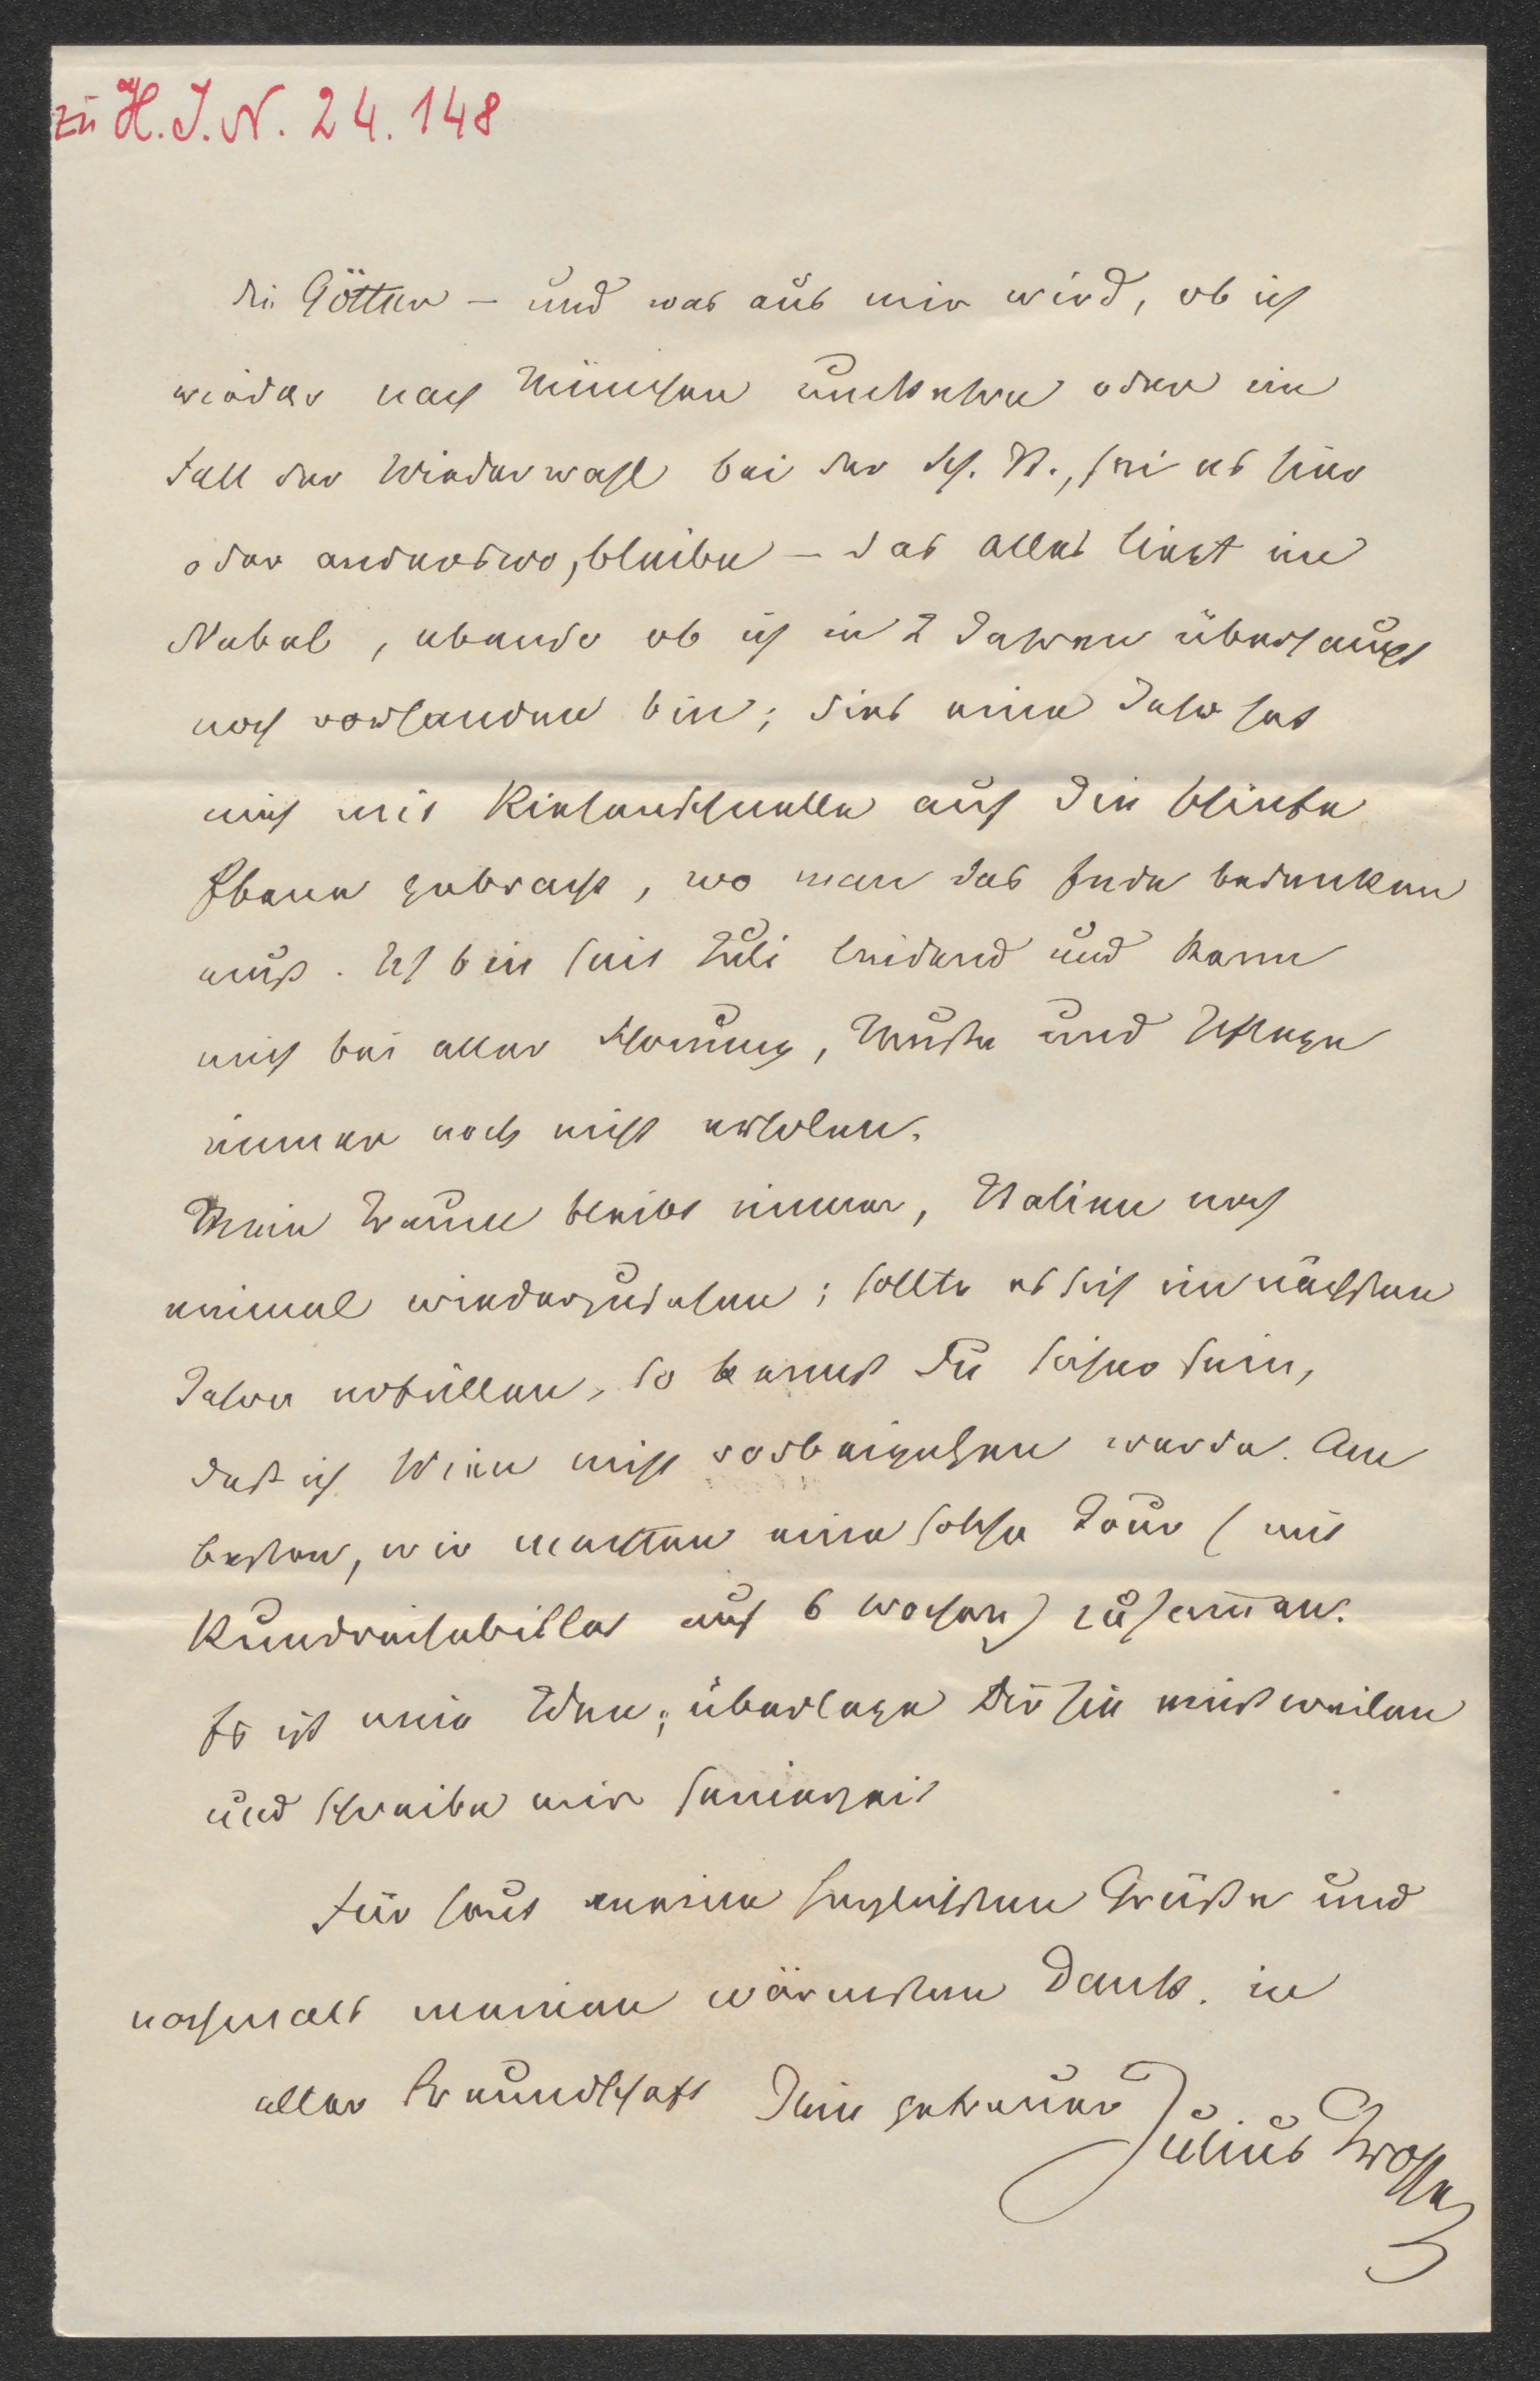 zu H. J. N. 24.148
die Götter – und was aus mir wird, ob ich
wieder nach München umkehre oder im
Fall der Wiederwahl bei der Sch. St., sei es hier
oder anderswo, bleibe – das alles liegt im
Nebel, ebenso ob ich in 2 Jahren überhaupt
noch vorhanden bin; dies eine Jahr hat
mich mit Riesenschnelle auf die schiefe
Ebene gebracht, wo man das Ende bedenken
muß. Ich bin seit Juli leidend und kann
mich bei aller Schonung, Muße und Pflege
immer noch nicht erholen.
Mein Traum bleibt immer, Italien noch
einmal wiederzusehen; sollte es sich im nächsten
Jahre erfüllen, so kannst Du sicher sein,
daß ich Wien nicht vorbeigehen werde. Am
besten, wir machten eine solche Tour (mit
Rundreisebillet auf 6 Wochen) zusam̄en.
Es ist eine Idee; überlege Dir sie einstweilen
und schreibe mir seinerzeit
Für heut meine herzlichsten Grüße und
nochmals meinen wärmsten Dank. in
alter Freundschaft Dein getreuer
Julius Grosse